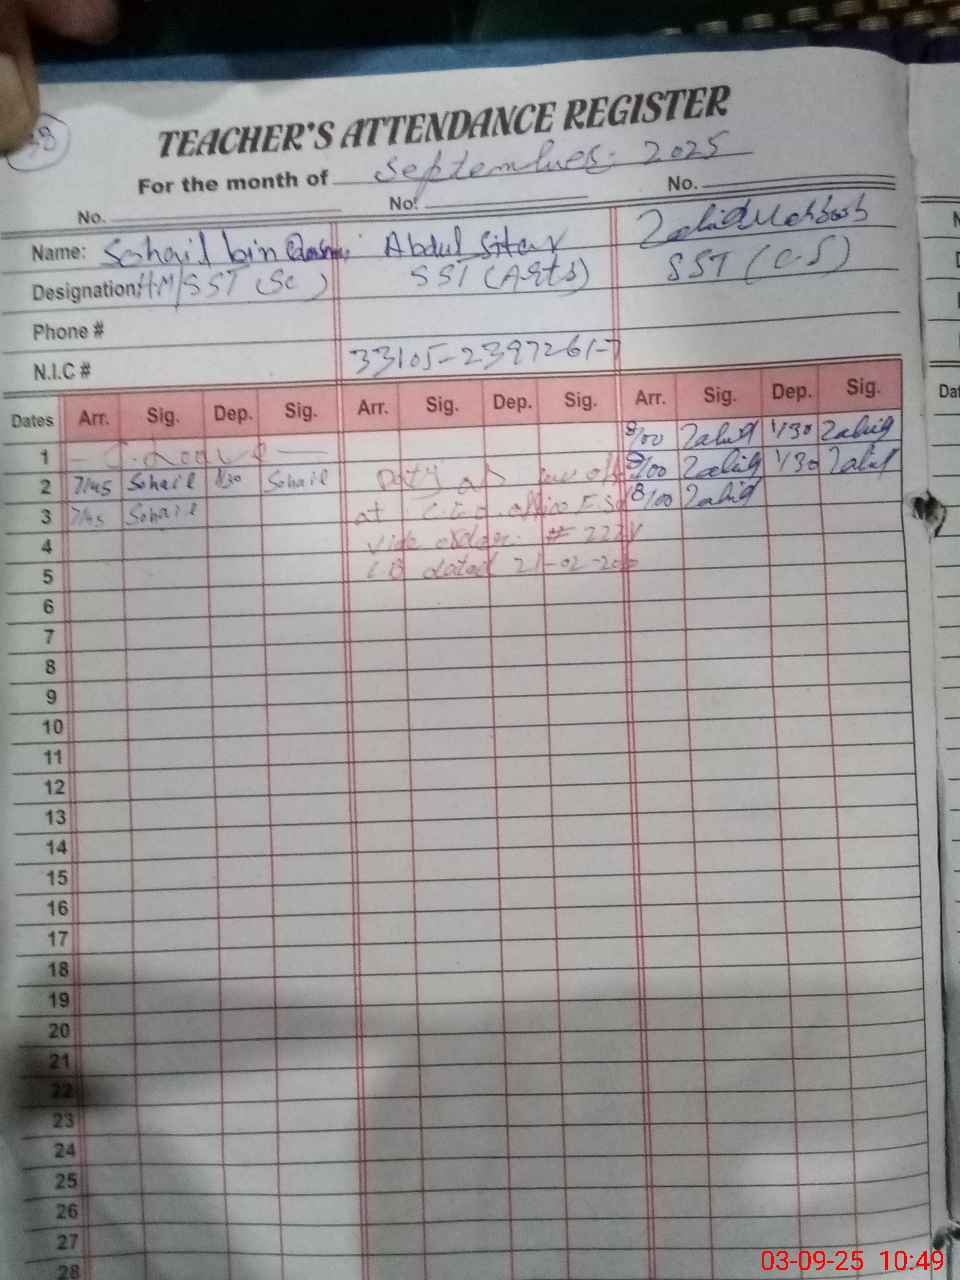 38
TEACHER'S ATTENDANCE REGISTER
For the month of September. 2025
No. No. No.
Name: Sohail bin Abdul Sitar Zahid Mehboob
Designation: HM/SST (Sc) SST (Arts) SST (C.S)
Phone #
N.I.C # 33105-2397261-7
Dates Arr. Sig. Dep. Sig. Arr. Sig. Dep. Sig. Arr. Sig. Dep. Sig.
1 8/00 Zahid 1/30 Zahid
2 7/45 Sohail 1/30 Sohail Duty as 8/00 Zahid 1/30 Zahid
3 7/45 Sohail at C.E.O office F.Sd 8/00 Zahid
4 vide order. # 222
5 dated 21-02-20
6
7
8
9
10
11
12
13
14
15
16
17
18
19
20
21
22
23
24
25
26
27
28
N
D
Dat
03-09-25 10:49